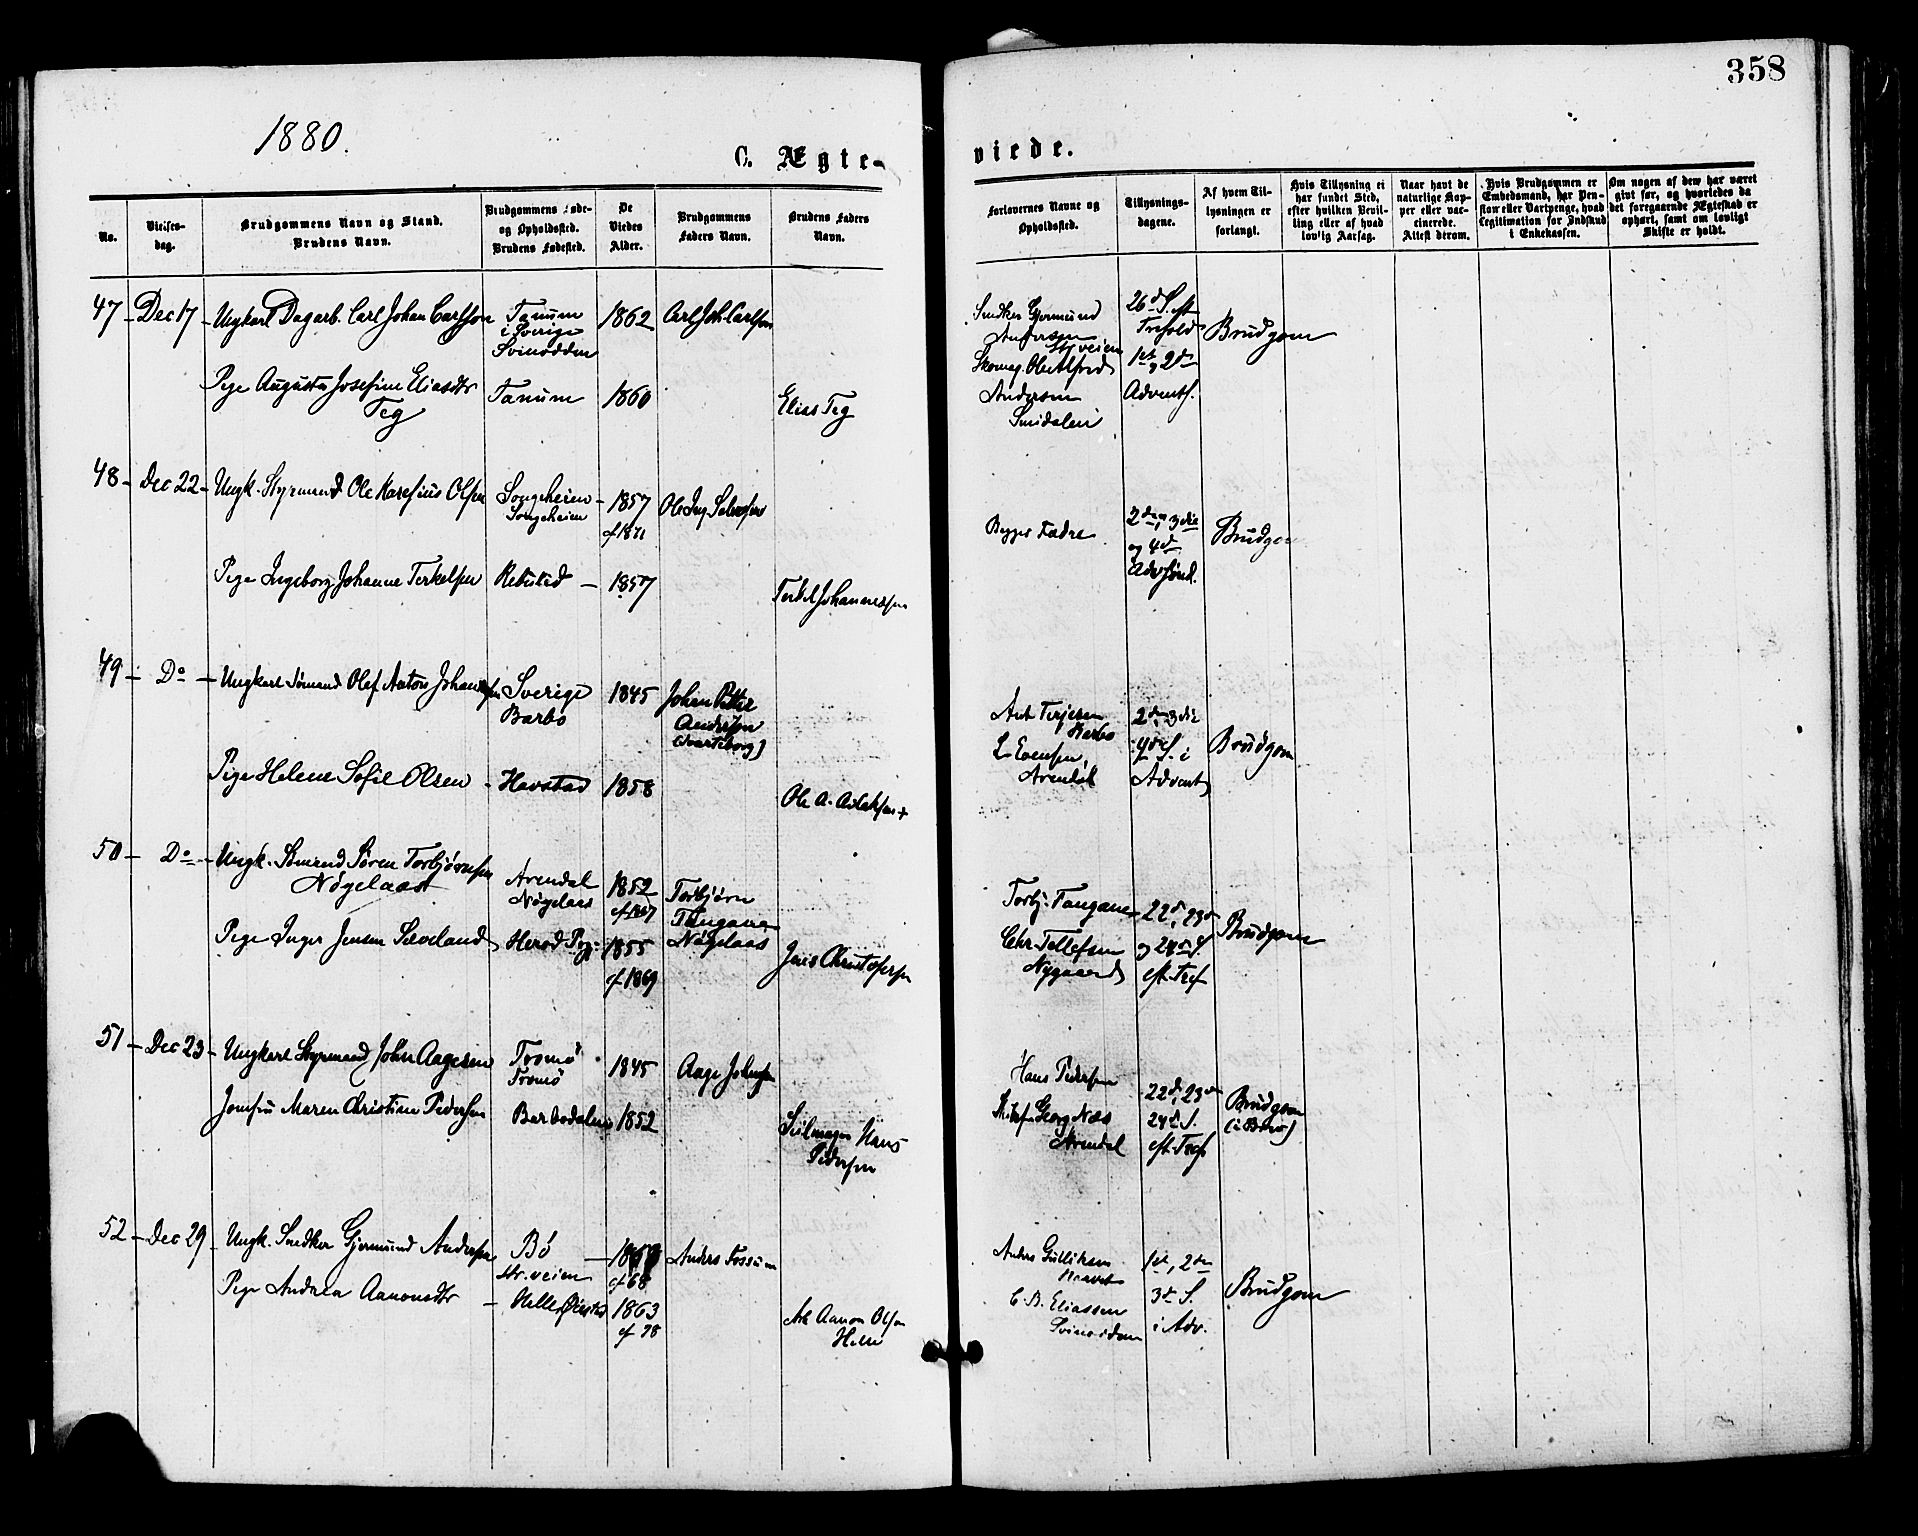 358
1880.
C. Ægte-
viede.
No.
Vielses-
dag.
Brudgommens Navn og Stand.
Brudens Navn.
Brudgommens Føde-
og Opholdssted.
Brudens Fødested.
De
Viedes
Alder.
Brudgommens
Faders Navn.
Brudens Faders
Navn.
Forlovernes Navne og
Opholdssted.
Tillysnings-
dagene.
Af hvem Til-
lysningen er
forlangt.
Hvis Tillysning ei
har fundet Sted,
efter hvilken Bevil-
ling eller af hvad
lovlig Aarsag.
Naar havt de
naturlige Kop-
per eller vac-
cinerede.
Attest derom.
Hvis Brudgommen er
Embedsmand, har Pen-
sion eller Vartpenge, hvad
Legitimation for Indskud
i Enkekassen.
Om nogen af dem har været
gift før, og hvorledes da
det foregaaende Ægteskab er
ophørt, samt om lovligt
Skifte er holdt.
47 - Dec 17 - Ungkarl Dagarb. Carl Johan Carlsson
Tanum
i Sverige
Svinodden
1862
Carl Joh. Carlson
Pige Augusta Josefine Eliasdtr
Teg
Tanum
1860
Elias Teg
Snedker Gjermund
Andersen
Str.veien
Skomag. Ole Alfred
Andersen
26d S. eft
Trefold
1st og 2den
AdventS.
Brudgom
48 - Dec 22 - Ungk. Styrmand Ole Karelius Olsen
Songeheien -
Songeheien
1857
cf 1871
Pige Ingeborg Johanne Terkelsen
Rebustad -
1857
Terkel Johannessen
Begges Fædre
2den, 3die
og 4de
Adv. Sønd.
Brudgom
49 - Do - Ungkarl Sømand Olef Anton Johansen
Sverige
Barbo
1845
Johan Petter
Andersson
Pige Helene Sofie Olsen -
Havstad
1858
Ole A. Aslaksen +
Ant Terjesen
Barbo
L. Evensen,
Arendal
2den, 3die
4de S. i
Advent
Brudgom
50 - Do - Ungk. Sømand Søren Torbjørnsen
Nøgelaas
Arendal
Nøgelaas
1852
cf 1867
Torbjørn
Tangane
Nøgelaas
Pige Inger Jensen Sæveland
1855
cf 1869
Jens Christofersen
Torbj. Tangane
Chr. Tellefsen
Nygaard
22d, 23d
og 24d S.
eft. Tref
Brudgom
51 - Dec 23 - Ungkarl Styrmand John Aagesen
Tromø
Tromø
1845
Aage Johnsen
Jomfru Maren Christine Pedersen
Barbodalen
1852
Seilmager Hans
Pedersen
Hans Pedersen
Georg Næs
Arendal
22d, 23d
24d S.
eft. Tref
Brudgom
52 - Dec 29 - Ungk. Snedker Gjermund Andersen
Bø
Str.veien
cf 68
Anders Fossum
Pige Andrea Aanonsdtr -
Helle Øiestad
1863
cf 78
Arb Aanon Olsen
Helle
Anders Gulliksen
C. B. Eliassen
1ste, 2den
3d S.
i Adv.
Brudgom